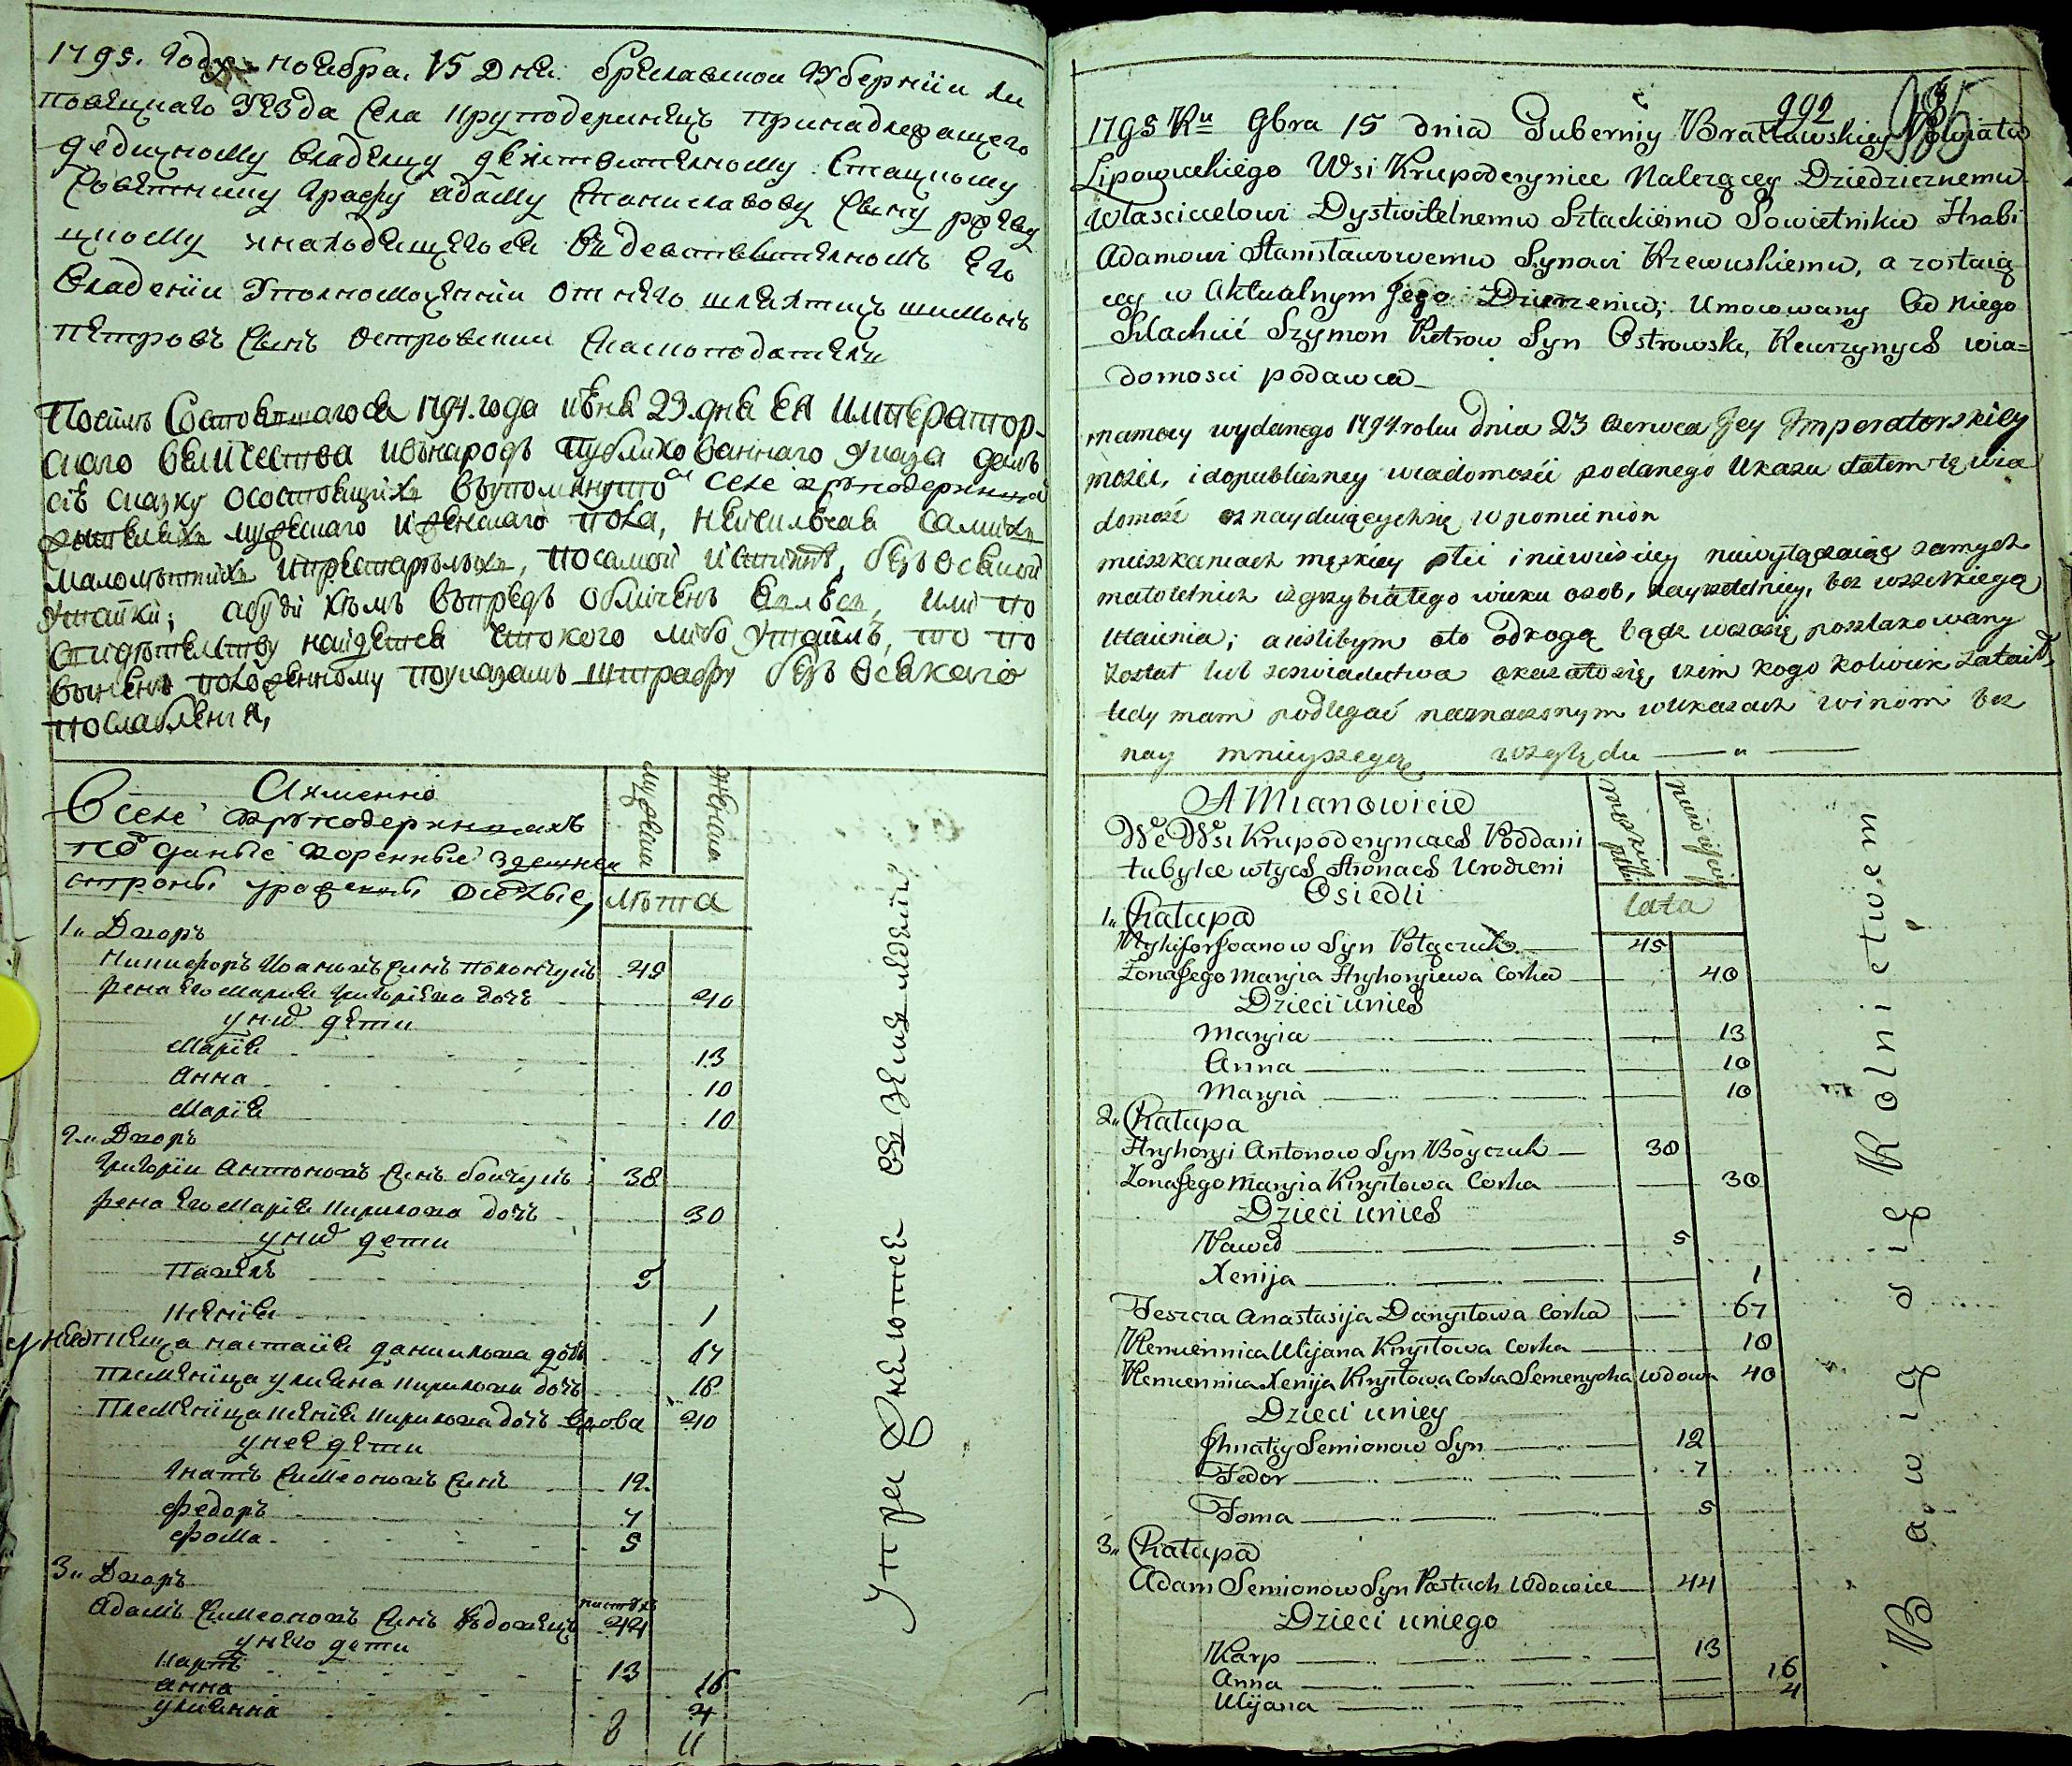 1795. Году ноября. 15 Дня. брацлавской Губернїи Ли
повецкаго Уезда Села Круподеринец принадлежащего
дедичному владелцу действителному Статцкому
Советнику Графу адаму Станиславову Сыну ржеву
цкому инаходящегося въ действителномъ его
владенїи Уполномоченнїи от него шляхтичъ шимонъ
петровъ Сынъ островский Сказкоподатель
Посилѣ Состоявшагося 1794. года июня 23. дня Ея Император-
скаго величества ивънародъ Публикованнаго Указа далъ
сїю сказку осостоящихъ въупомянутом Селе круподеринцах
жителяхъ мужескаго иженскаго пола, невключая самыхъ
малолѣтнихъ ипрестарѣлыхъ, посамой истиннѣ, безъ всякой
Утайки; абуде кѣмъ впредь обличенъ явлюсь, или по
свидѣтельству найдется что кого либо утаилъ, то по
виненъ положенному поуказамъ штрафу безъ всякаго
послабленїя,
Аименно
Въ селе круподеринцахъ
подданые коренные здешней
стороны урожены оседлые,
мужеска
женска
лѣта
1.. Дворъ
Никифоръ Ивановъ Синъ полончукъ 45
жена Его Мария григорїева дочь 40
у них дети
Марїя 13
Анна 10
Марїя 10
2.. Дворъ
григорїи Антоновъ Синъ бойчукъ 38
жена Его Марїя Кирилова дочь 30
у них дети
Павелъ 5
Ксенїя 1
тїоща настасїя даниилова дочь 67
племеница улияна кирилова дочь 18
племеница ксенїя кирилова дочь вдова 40
у нее дети
Игнатъ Симеоновъ Синъ 12.
федоръ 7
фома 5
3.. Дворъ
пастухъ
адамъ Симеоновъ Синъ вдовецъ 44
у него дети
карпъ 13
анна 16
улиянна 4
8 11
Упражняются въ земледелїи
992
985
1795 Ru 9bra 15 dnia Guberniy Bracławskiey Powiatu
Lipowieckiego Wsi Krupoderyniec Nalezącey Dziedzicznemu
Własciccelowi Dystwitelnemu Sztackiemu Sowietniku Hrabi
Adamowi Stanisławowemu Synowi Rzewuskiemu, a zostaią
cey w Aktualnym Jego Dzierzeniu; Umocowany Od Niego
Szlachcić Szymon Piotrow Syn Ostrowski, Rewizynych wia=
domosci podawca
namocy wydanego 1794 roku dnia 23 czerwca Jey Imperatorskiey
mości, i dopubliczney wiadomośći podanego Ukazu dałem tę wia
domość oznayduiącychsię wpomienion
mieszkaniach męzkiey płci i niewieściey niewyłączaiąc samych
małoletnich izgrzybiałego wieku osob, nayrzetelniey, bez wszelkiego
utaienia; a ieslibym oto odkogo bądz wczasię poszlakowany
został lub zeswiadectwa okazałosię, żem kogo kolwiek zataił,
tedy mam podlegać naznaczonym wukazach winom bez
nay mnieyszego względu
A Mianowicie
We Wsi Krupoderyncach Poddani
tubylce wtych Stronach Urodzeni
Osiedli
męzkiey płci
niewiesciey
lata
1.. Chałupa
Nykifor Joanow Syn Połączuk 45
Zona Jego Maryia Hryhoryiewa Corka 40
Dzieci unich
Maryia 13
Anna 10
Maryia 10
2.. Chałupa
Hryhoryi Antonow Syn Boyczuk 38
Zona Jego Maryia Kiryłowa Corka 30
Dzieci unich
Paweł 5
Xenija 1
Teszcza Anastasija Danyłowa Corka 67
Plemiennica Ulijana Kiryłowa Corka 18
Plemiennica Xenija Kiryłowa Corka Semenycha Wdowa 40
Dzieci uniey
Ihnatiy Semionow Syn 12
Fedor 7
Foma 5
3.. Chałupa
Adam Semionow Syn Pastuch Wdowiec 44
Dzieci uniego
Karp 13
Anna 16
Ulijana 4
Bawią się Rolnictwem